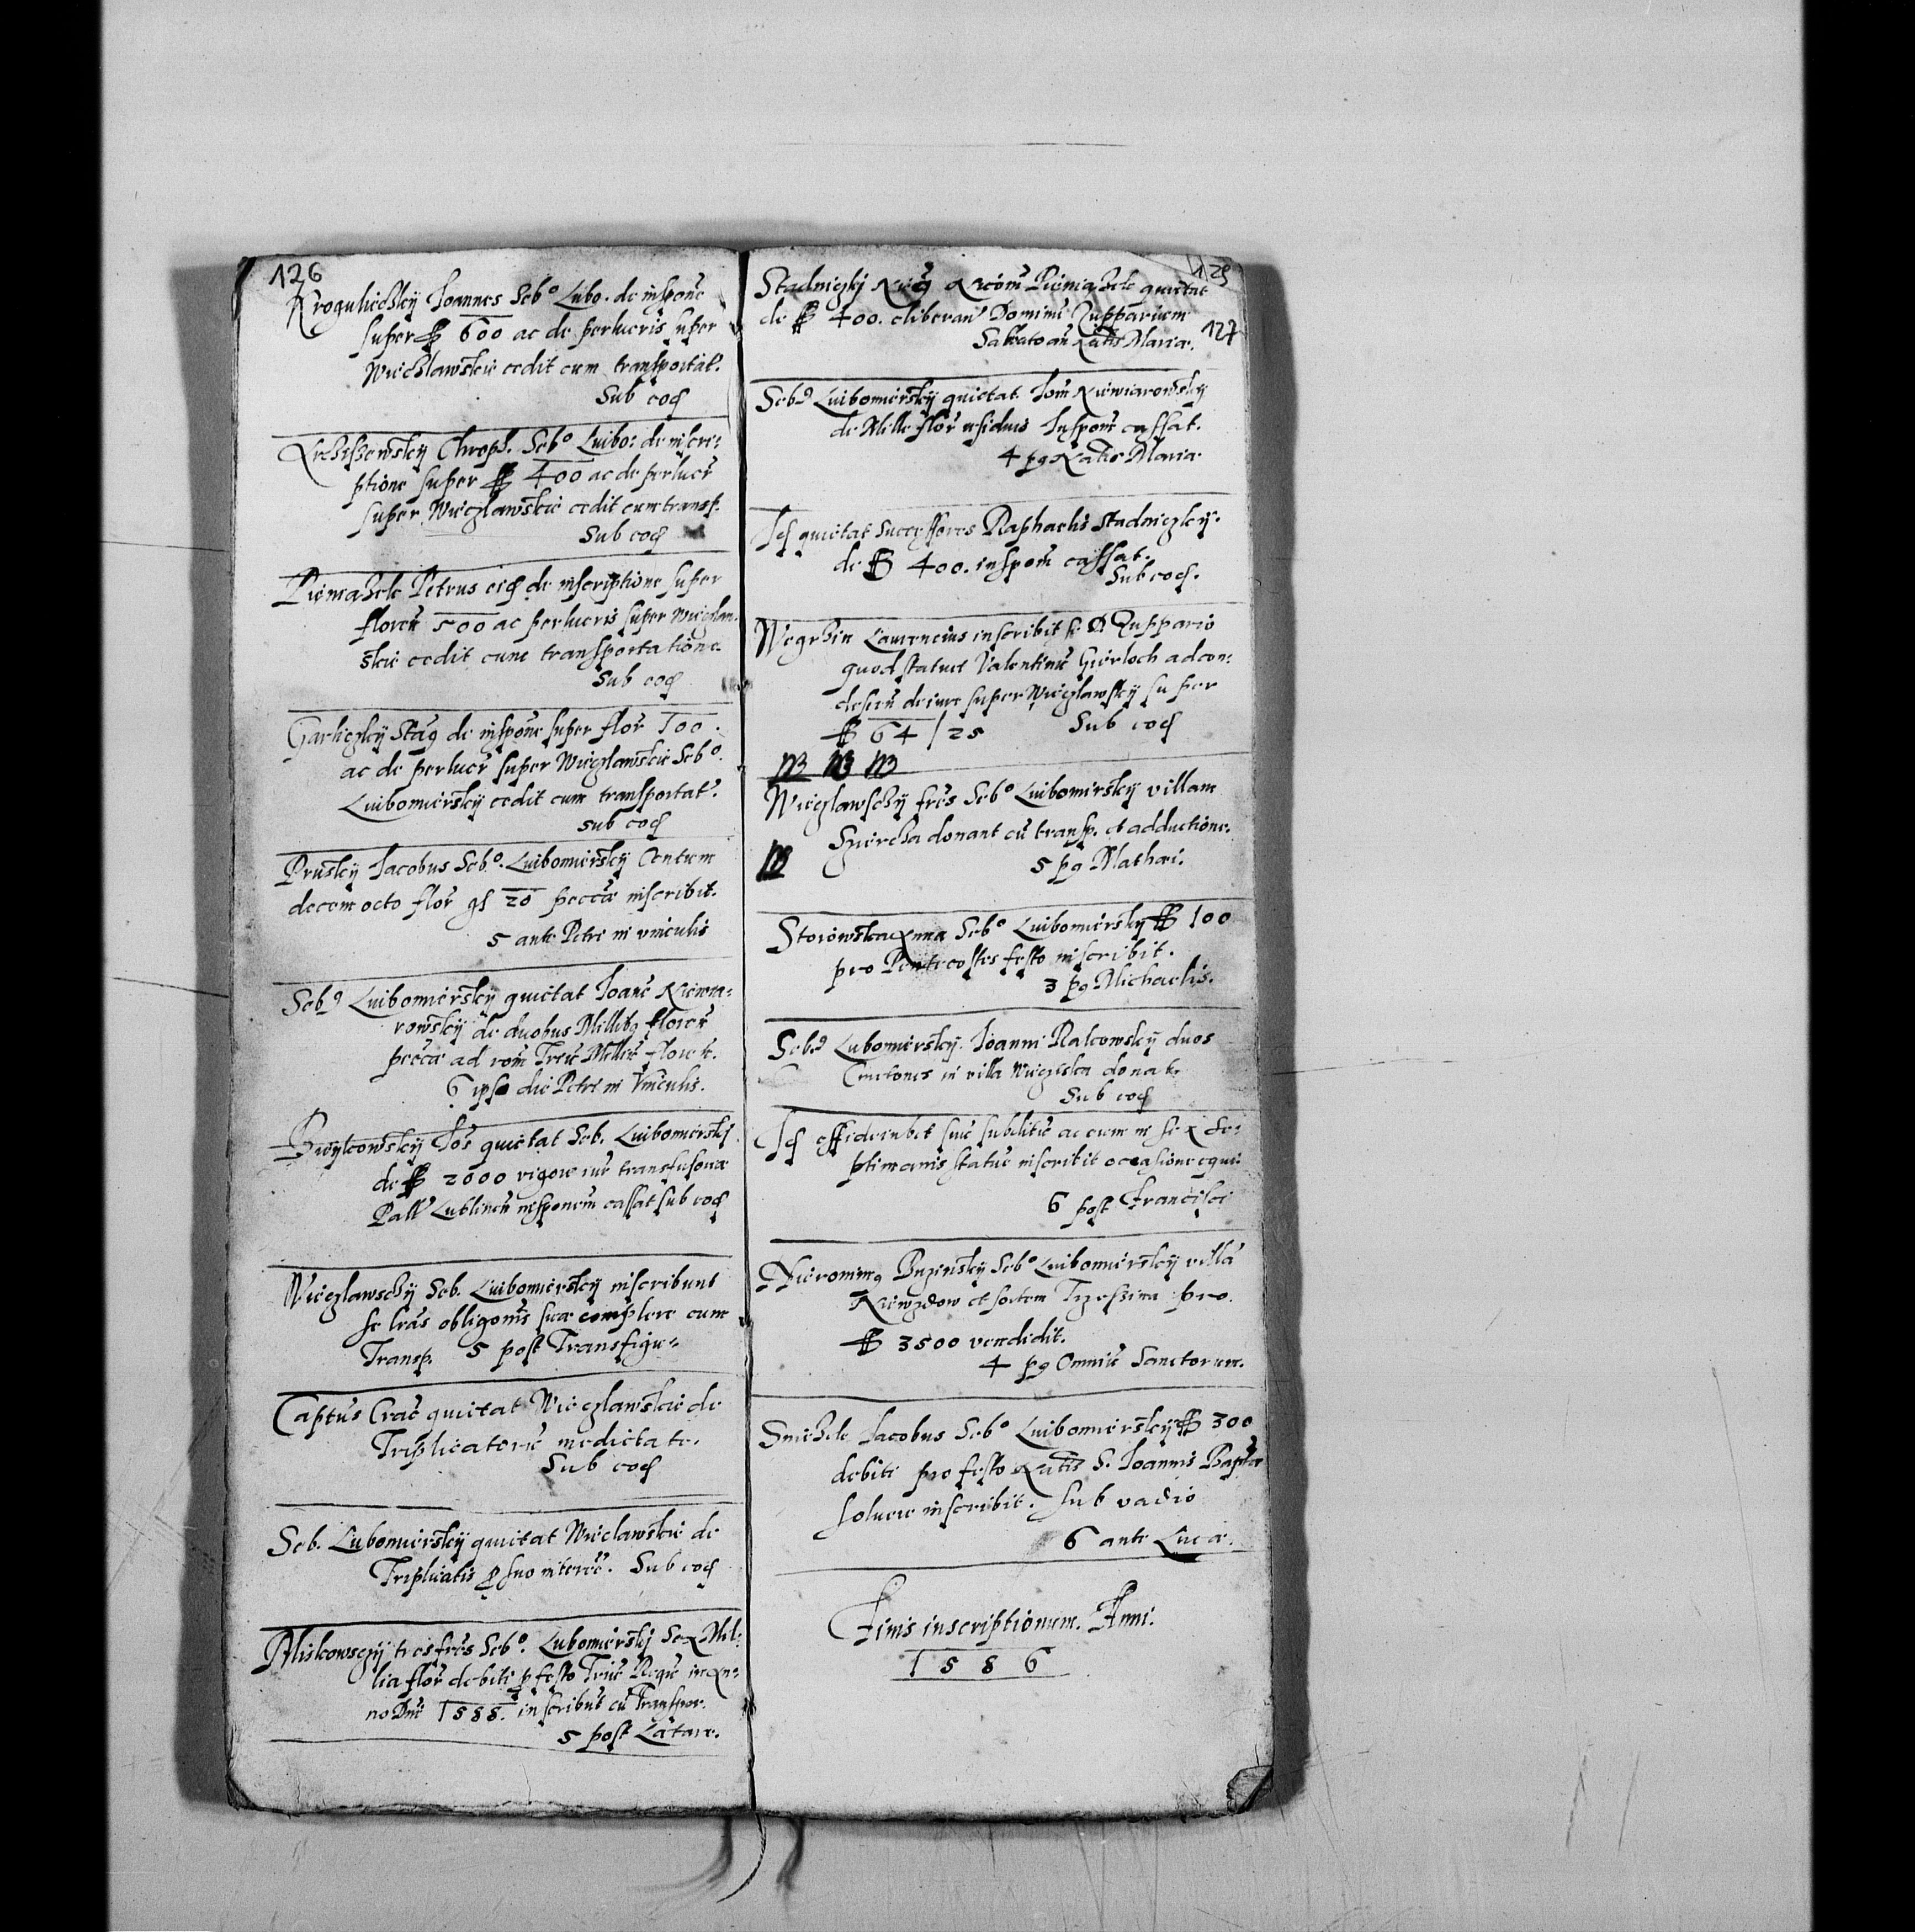 126
Kroguliecky Joannes Seb⁰ Lubo. de inspone
super ff 600 ac de perlucris super
Wieclawskie cedit cum transportat.
Sub eod
Chroph. Seb⁰ Luibo: de inscri:
ptione super ff 400 ac de perlucr
super Wiczlawskie cedit cum transp.
Sub eod
Pieniazek Petrus eid de inscriptione super
floren 500 ac perlucris super Wieczlaw
skie cedit cum transportatione
Sub eod
Garliczky Stag de inspone super flor 100.
ac de perlucr super Wieczlawskie Seb⁰.
Luibomiersky cedit cum transportat.
sub eod
Prusky Jacobus Seb⁰. Luibomiersky Centum
decem octo flor gs 20 pecca inscribit.
5 ante Petri in vinculis
Seb9 Luibomiersky quietat Joane Niewia:
rowsky de duobus Millibq floren
pecca ad rom Triu Milliu floren.
6 ipso die Petri in Vinculis.
Joes quietat Seb. Luibomiersky
de ff 2000 vigore iur transfusoria
Pall Lublinen insponem cassat sub eod
Wieczlawsczy Seb. Luibomiersky inscribunt
se lras obligonis sua complere cum
Transp. 5 post Transfigu=
Captus Crac quietat Wieczlawskie de
Triplicatoru medietate.
Sub eod
Seb. Lubomiersky quietat Wieclawskie de
Triplicatis p suo interee. Sub eod
Miskowsczy tres fres Seb⁰. Lubomiersky Sex Mil:
lia flor debiti p festo Triu Regu in An:
no Dni 1588. inscribut cu Transpor.
5 post Latare.
125
127
Stadniczky Pieniazek quietat
de ff 400. Dominu Zupparium
Sabbato an Natis Maria.
Seb9 Luibomiersky quietat Joan Niewiarowsky
de Mille flor residuis Inspone cassat.
4 pq Natis Maria
Id quietat Successores Raphaelis Stadniczky.
de ff 400. inspom cassat.
Sub eod.
Wegrzin Laurencius inscribit se D Zuppario
quod statuet Valentinu Gierloch ad con:
descen de iure super Wieczlawsky super
ff 64 / 25 Sub eod
NB NB NB
Wieczlawsczy fres Seb⁰ Luibomirsky villam
Sziercza donant cu transp. et adductione.
5 pq Mathaei.
NB
Storowska Anna Seb⁰ Luibomiersky ff 100
pro Pentecostes festo inscribit.
3 pq Michaelis.
Seb9 Lubomiersky Joanni Ralcowsky duos
Cmetones in villa donat.
Sub eod
Id suu subditu ac eum in sex se:
ptimanis statue inscribit occasione equi
6 post Francisci
Hieronimq Buzinsky Seb⁰ Luibomiersky villa
et sortem pro
ff 3500 vendidit.
4 pq Omniu Sanctorum.
Jacobus Seb⁰ Luibomiersky ff 300
debiti pro festo Natis S. Joannis Bapta
soluere inscribit. sub vadio
6 ante Luca.
Finis inscriptionum. Anni.
1586